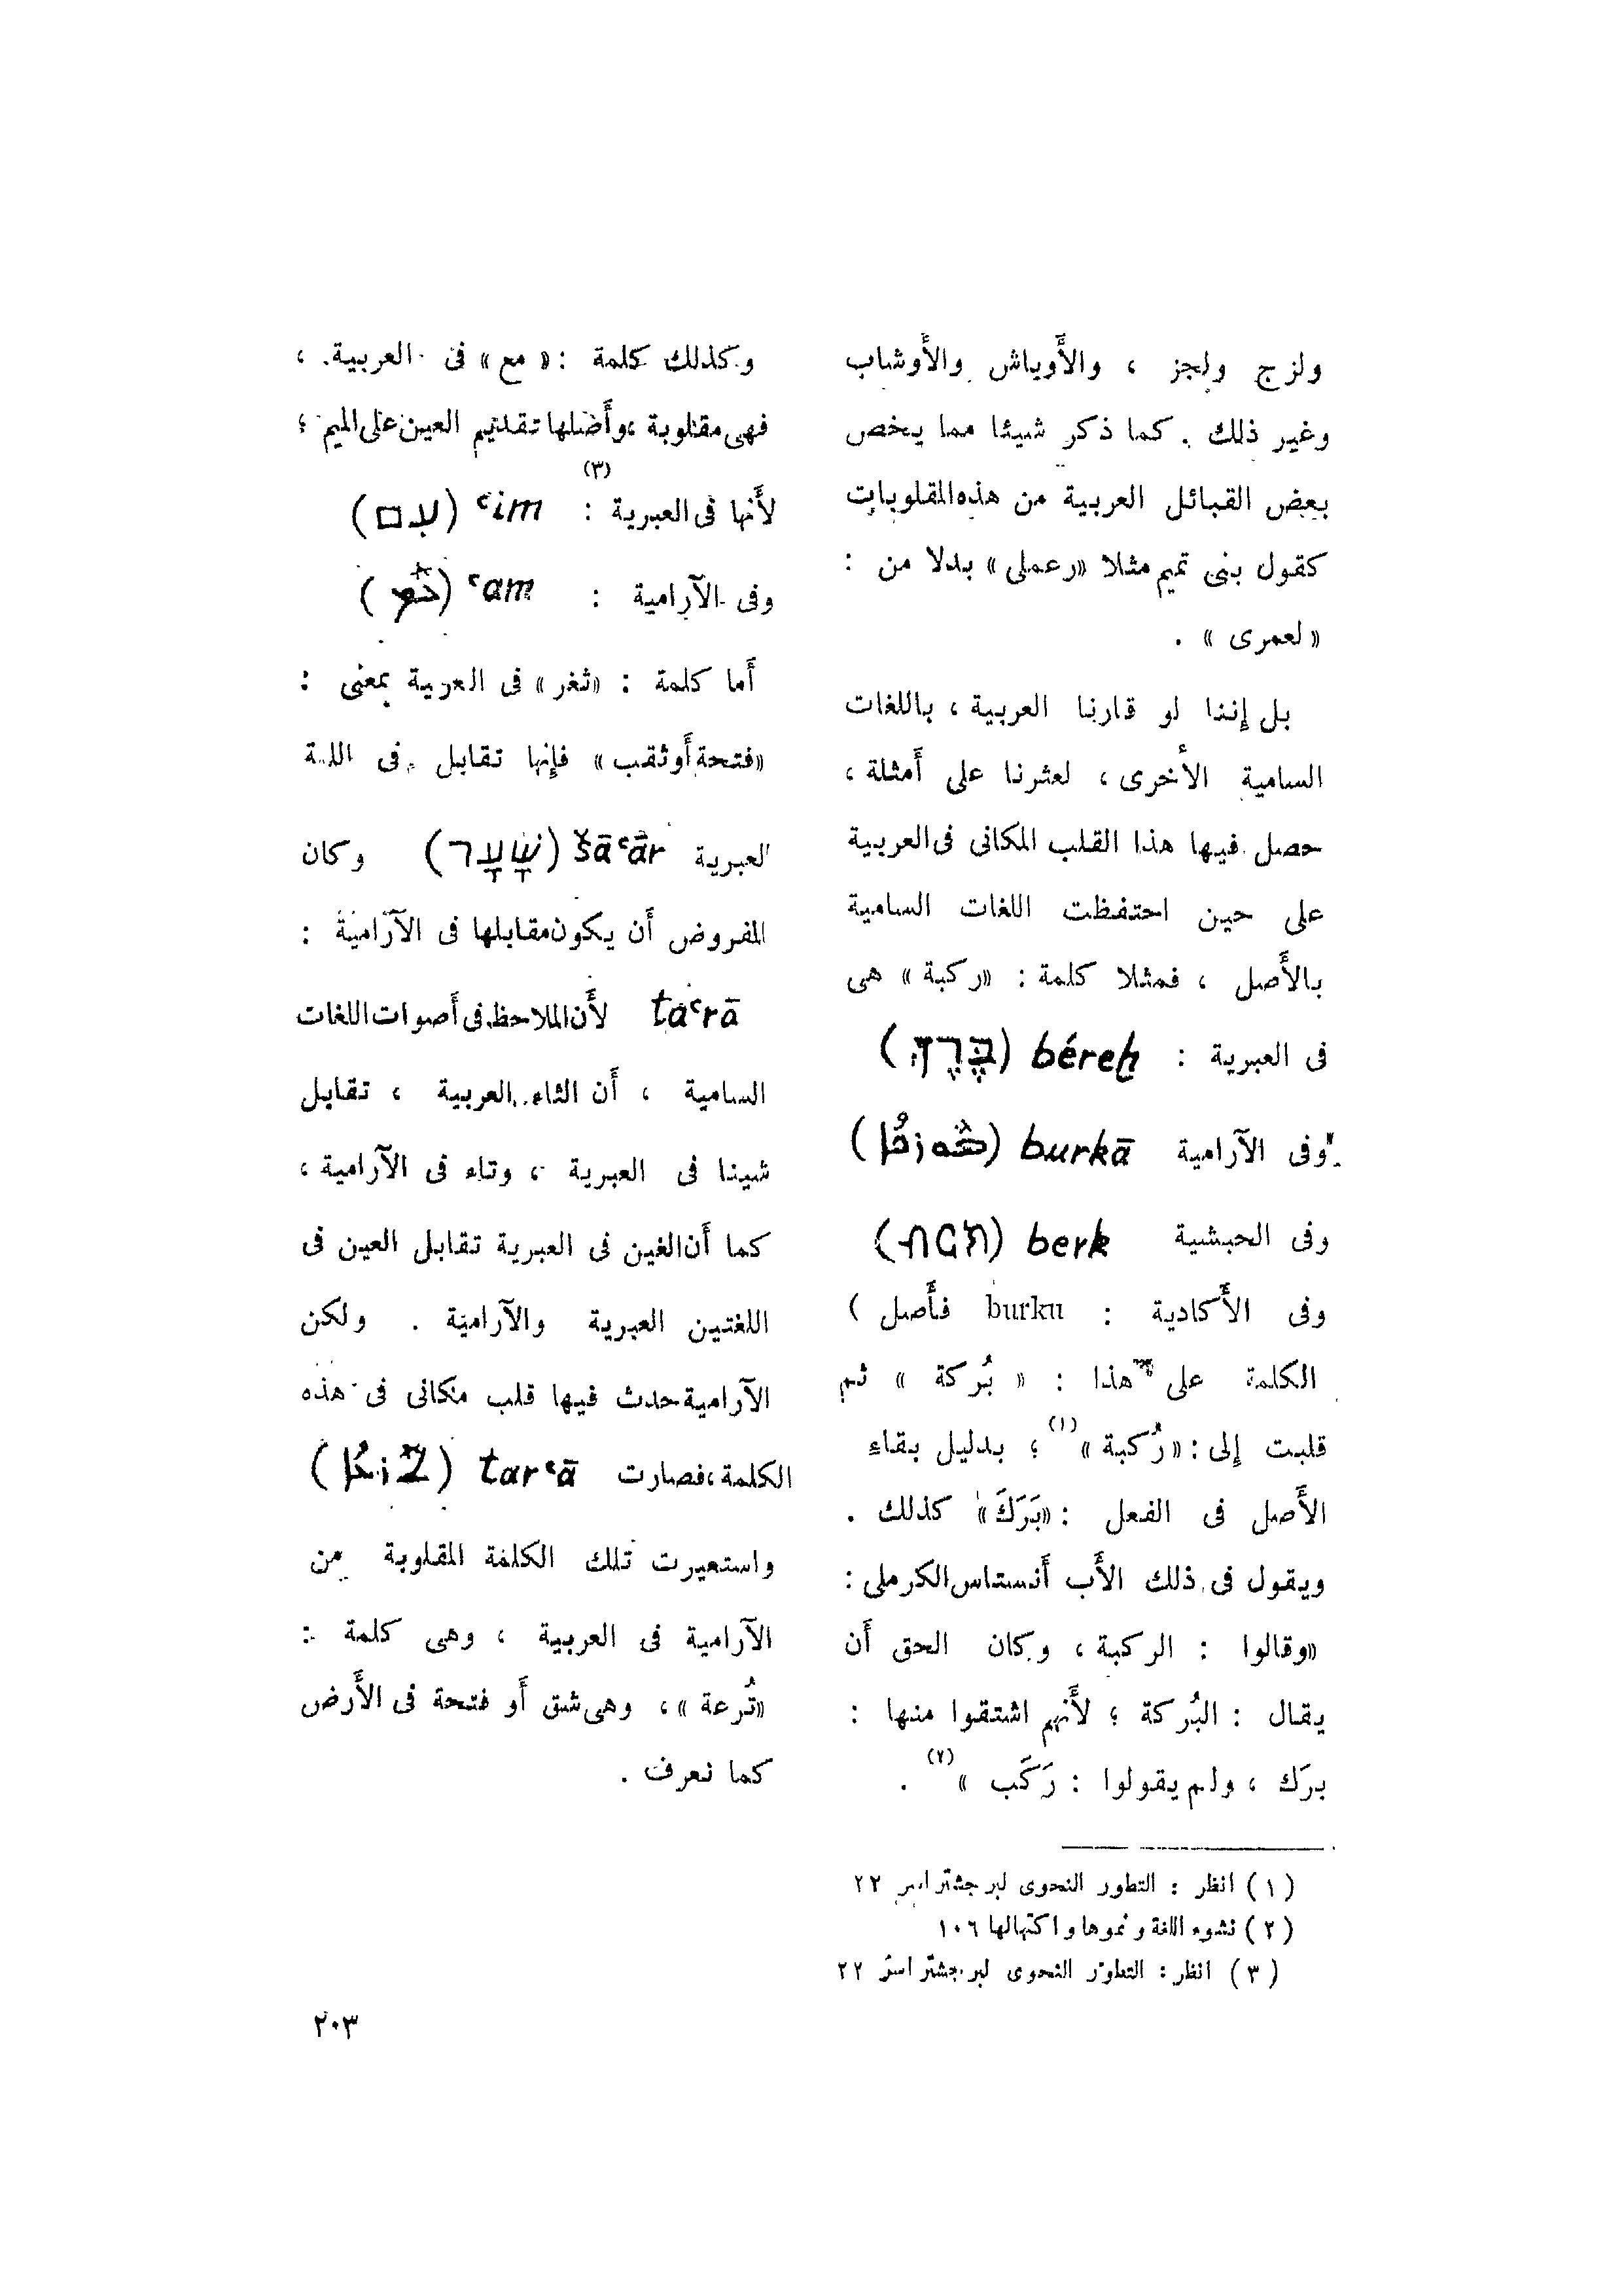 ولزج ولجز ، والأوباش والأوشاب
وغير ذلك . كما ذكر شيئا مما يخص
بعض القبائل العربية من هذه المقلوبات
كقول بنى تميم مثلا «رعملى» بدلا من :
«لعمرى» .
بل إننا لو قارنا العربية ، باللغات
السامية الأخرى ، لعثرنا على أمثلة ،
حصل فيها هذا القلب المكانى فى العربية
على حين احتفظت اللغات السامية
بالأصل ، فمثلا كلمة : «ركبة» هى
فى العبرية : béreḫ (בֶּרֶךְ)
وفى الآرامية burkā (ܒܘܪܟܐ)
وفى الحبشية berk (ብርክ)
وفى الأكادية : burku فأصل )
الكلمة على هذا : « بُركة » ثم
قلبت إلى : «رُكبة»(١) ؛ بدليل بقاء
الأصل فى الفعل : «بَرَكَ» كذلك .
ويقول فى ذلك الأب أنستاس الكرملى :
«وقالوا : الركبة ، وكان الحق أن
يقال : البُركة ؛ لأنهم اشتقوا منها :
برَك ، ولم يقولوا : رَكَب »(٢) .
وكذلك كلمة : «مع» فى العربية ،
فهى مقلوبة ، وأصلها تقديم العين على الميم ؛
لأنها فى العبرية(٣) : ʿim (עִם)
وفى الآرامية : ʿam (ܥܡ)
أما كلمة : «ثغر» فى العربية بمعنى :
«فتحة أو ثقب» فإنها تقابل فى اللغة
العبرية šāʿār (שָׁעָר) وكان
المفروض أن يكون مقابلها فى الآرامية :
taʿrā لأن الملاحظ فى أصوات اللغات
السامية ، أن الثاء العربية ، تقابل
شينا فى العبرية ، وتاء فى الآرامية ،
كما أن الغين فى العبرية تقابل العين فى
اللغتين العبرية والآرامية . ولكن
الآرامية حدث فيها قلب مكانى فى هذه
الكلمة ، فصارت tarʿā (ܬܪܥܐ)
واستعيرت تلك الكلمة المقلوبة من
الآرامية فى العربية ، وهى كلمة :
«تُرعة» ، وهى شق أو فتحة فى الأرض
كما نعرف .
(١) انظر : التطور النحوى لبرجشتراسر ٢٢
(٢) نشوء اللغة ونموها واكتهالها ١٠٦
(٣) انظر : التطور النحوى لبرجشتراسر ٢٢
٢٠٣